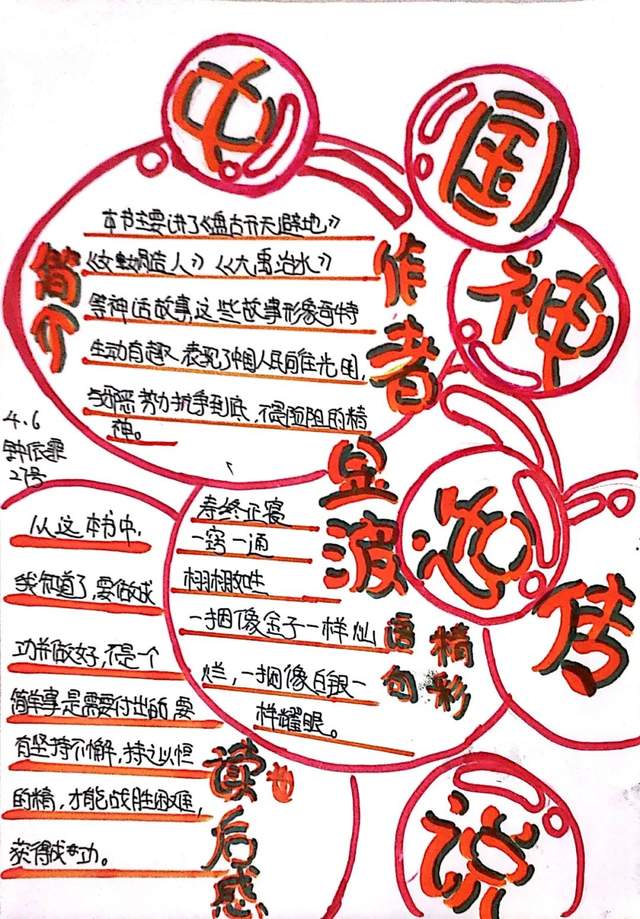 中
国
神
话
传
说
简介
本书主要讲了《盘古开天避地》
《女娲造人》《大禹治水》
等神话故事,这些故事形象奇特
生动有趣、表现了中国人民向往光明,
与邪恶努力抗争到底,不是险阻的精
神。
作者
显波
4.6
27号
寿终正寝
一窍一通
栩栩如生
一捆像金子一样灿
烂,一捆像白银一
样耀眼。
精彩
语句
从这本书中,
我知道了,要做成
功并做好,不是一个
简单事是需要付出的,要
有坚持不懈,持之以恒
的精,才能战胜困难,
获得成功。
读后感